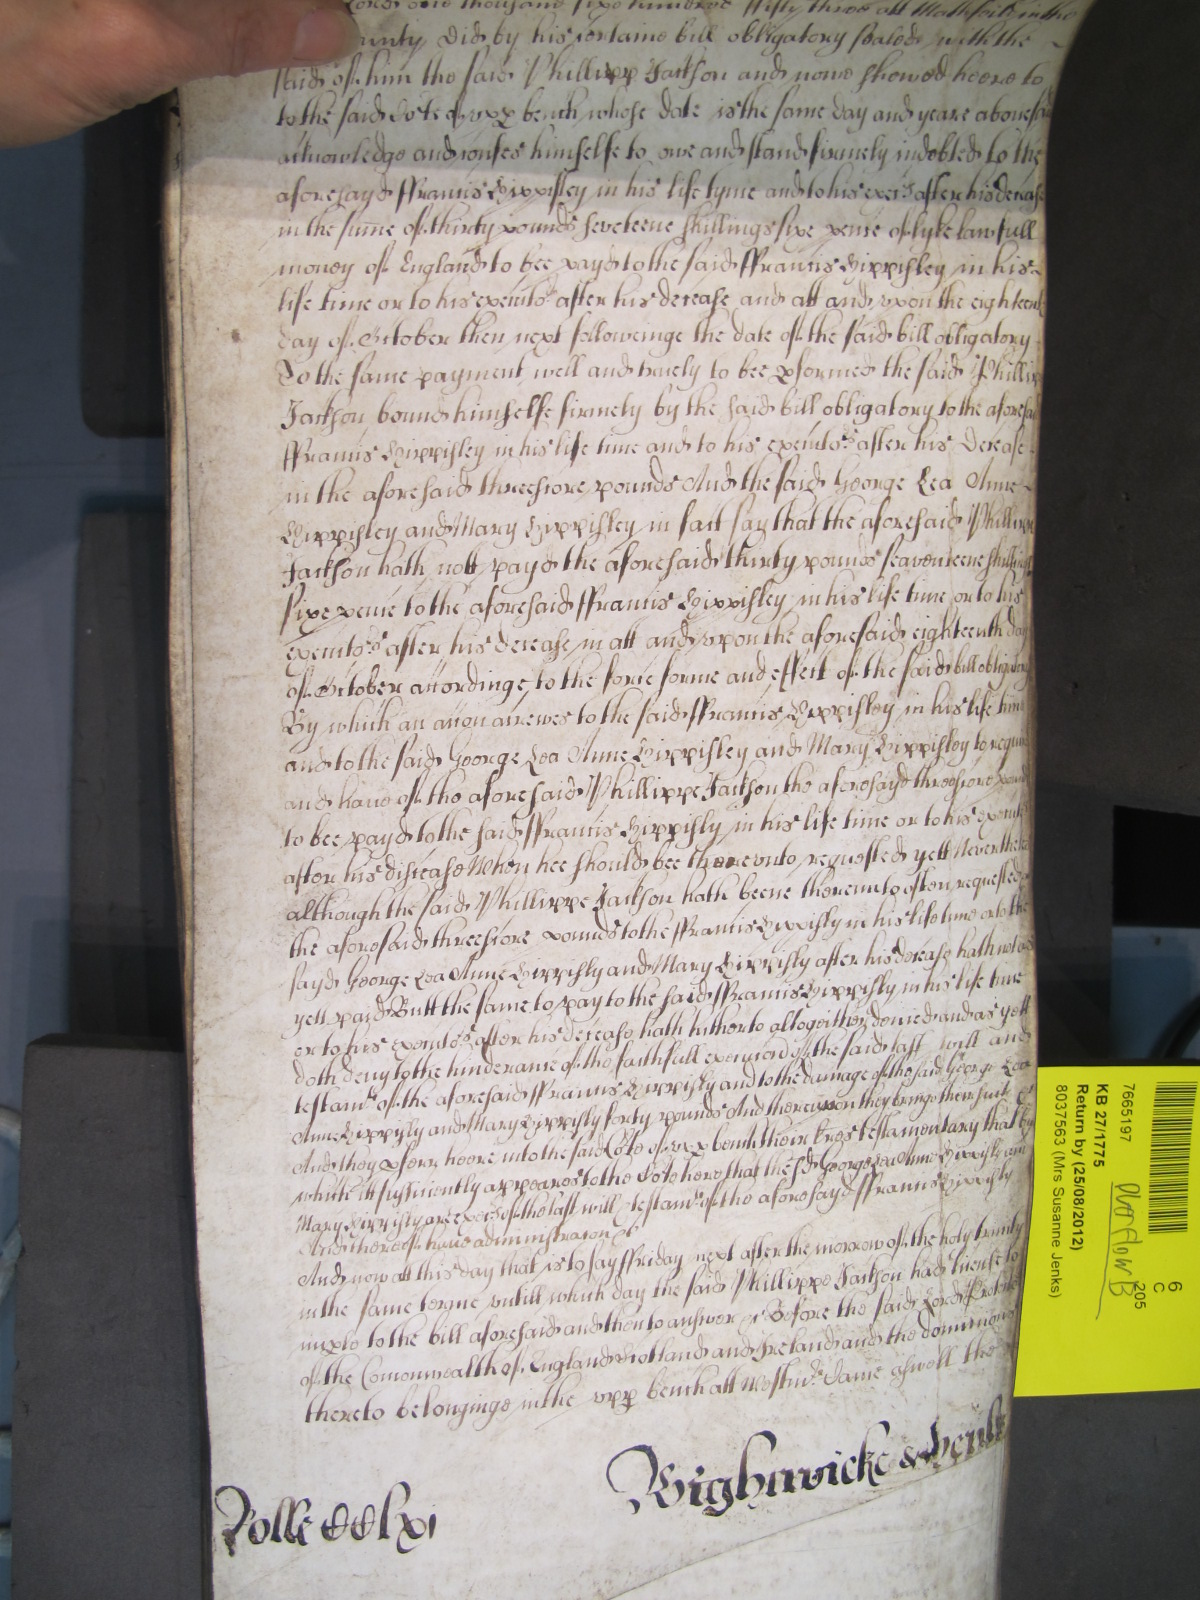 Lord one thousand sixe hundred fifty three att Mathfeild in the
County did by his certaine bill obligatory sealed with the
seale of him the said Phillipp Jackson and nowe shewed heere to
to the said Co:te of upp bench whose date is the same day and yeare abovesaid
acknowledge and confes himselfe to owe and stand firmely indebted to the
aforesayd ffrancis Hippisley in his life tyme and to his exec:rs after his decease
in the sume of thirty pounds seveteene shillings sixe pence of lyke lawfull
money of England to bee payd to the said ffrancis Hippisley in his
life time or to his executo:rs after his decease and att and upon the eighteenth
day of October then next followeinge the date of the said bill obligatory
To the same payment well and truely to bee pformed the said Phillipp
Jackson bound himselfe firmely by the said bill obligatory to the aforesaid
ffrancis Hippisley in his life time and to his executo:rs after his decease
in the aforesaid threescore pounds And the said George Lea Anne
Hippisley and Mary Hippisley in fact say that the aforesaid Phillipp
Jackson hath nott payd the aforesaid thirty pounds seaventeene shillings
sixe pence to the aforesaid ffrancis Hippisley in his life time or to his
executo:rs after his decease in att and upon the aforesaid eighteenth day
of October accordinge to the force forme and effect of the said bill obligatory
By which an accon accrewes to the said ffrancis Hippisley in his life time
and to the said George Lea Anne Hippisley and Mary Hippisley to require
and have of the aforesaid Phillippe Jackson the aforesayd threescore pounds
to bee payd to the said ffrancis Hippisly in his life time or to his execut
after his disease When hee should bee thereunto requested yett Neverthelesse
although the said Phillippe Jackson hath beene thereunto often requested
the aforesaid threescore pounds to the ffrancis Hippisly in his life time or to the
sayd George Lea Anne Hippisly and Mary Hippisly after his decease hath not as
yett paid Butt the same to pay to the said ffrancis Hippisly in his life time
or to his executo:rs after his decease hath hitherto altogeither denied and as yett
doth deny to the hinderance of the faithfull execucion of the said last will and
testam:t of the aforesaid ffrancis Hippisly and to the damage of the said George Lea
Anne Hippisly and Mary Hippisly forty pounds And thereupon they bringe their suit &c
And they pferr heere into the said Co:te of upp bench their tres testamentary that by
which itt sufficiently appeares to the Co:te here that the sd George Lea Anne Hippisly and
Mary Hippisly are exec:rs of the last will & testam:t of the aforesayd ffrancis Hippisly
And thereof have administracon &c
And now att this day that is to say ffriday next after the morrow of the holy trinity
in the same terme untill which day the said Phillippe Jackson had licence to
imple to the bill aforesaid and then to answer &c Before the said Lord Protector
of the Comonwealth of England Scotland and Ireland and the dominions
thereto belonginge in the upp bench att Westm:r Came aswell the
Wightwicke &
Rolle CClxi
7665197
KB 27/1775
Return by (25/08/2012)
8037563 (Mrs Susanne Jenks)
6
C
205
Overflow B